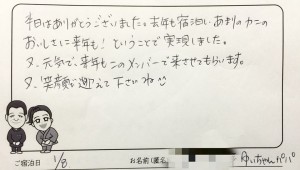 本日はありがとうございました。去年も宿泊し、あまりのカニの
おいしさに来年も！ということで実現しました。
又、元気で、来年もこのメンバーで来させてもらいます。
又、笑顔で迎えて下さいね
ご宿泊日 1/8 お名前（匿名 ゆいちゃんパパ